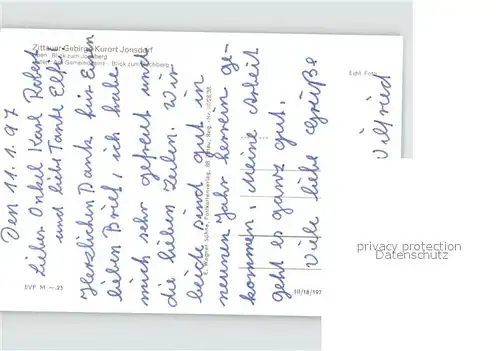 Zittauer Gebirge Kurort Jonsdorf
Oben: Blick zum Jonsberg
Unten: Am Gemeindeamt - Blick zum Jonsberg
Echt Foto
Den 11.1.97
Lieber Onkel Karl Robert
und liebe Tante Elfi
Herzlichen Dank für Euren
lieben Brief, ich habe
mich sehr gefreut und
die lieben Zeilen. Wir
beide sind gut in
neuen Jahr herrein ge-
kommen. Meine Arbeit
geht es ganz gut.
Viele liebe Grüße
Wilfried
EVP M -.25
III/18/197
privacy protection
Datenschutz